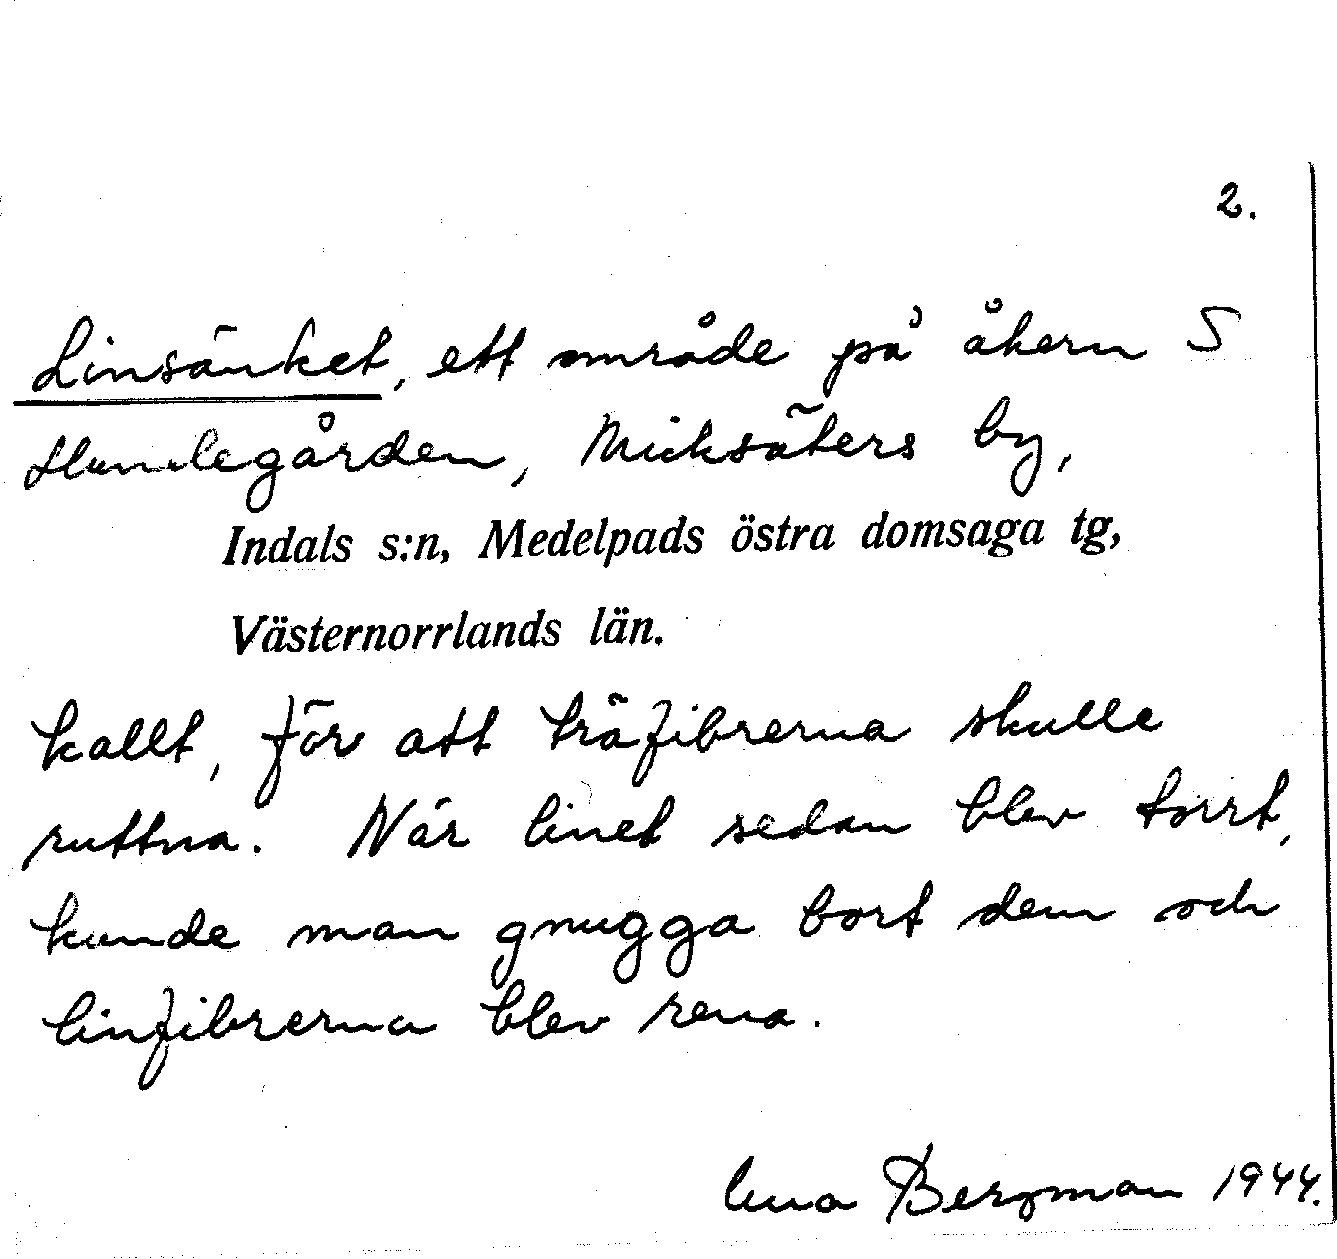 2.
Linsänket, ett område på åkern S
Humlegården, Micksäters by,
Indals s:n, Medelpads östra domsaga tg,
Västernorrlands län.
kallt, för att träfibrerna skulle
ruttna. När linet sedan blev torrt,
kunde man gnugga bort dem och
linfibrerna blev rena.
Bergman 1944.